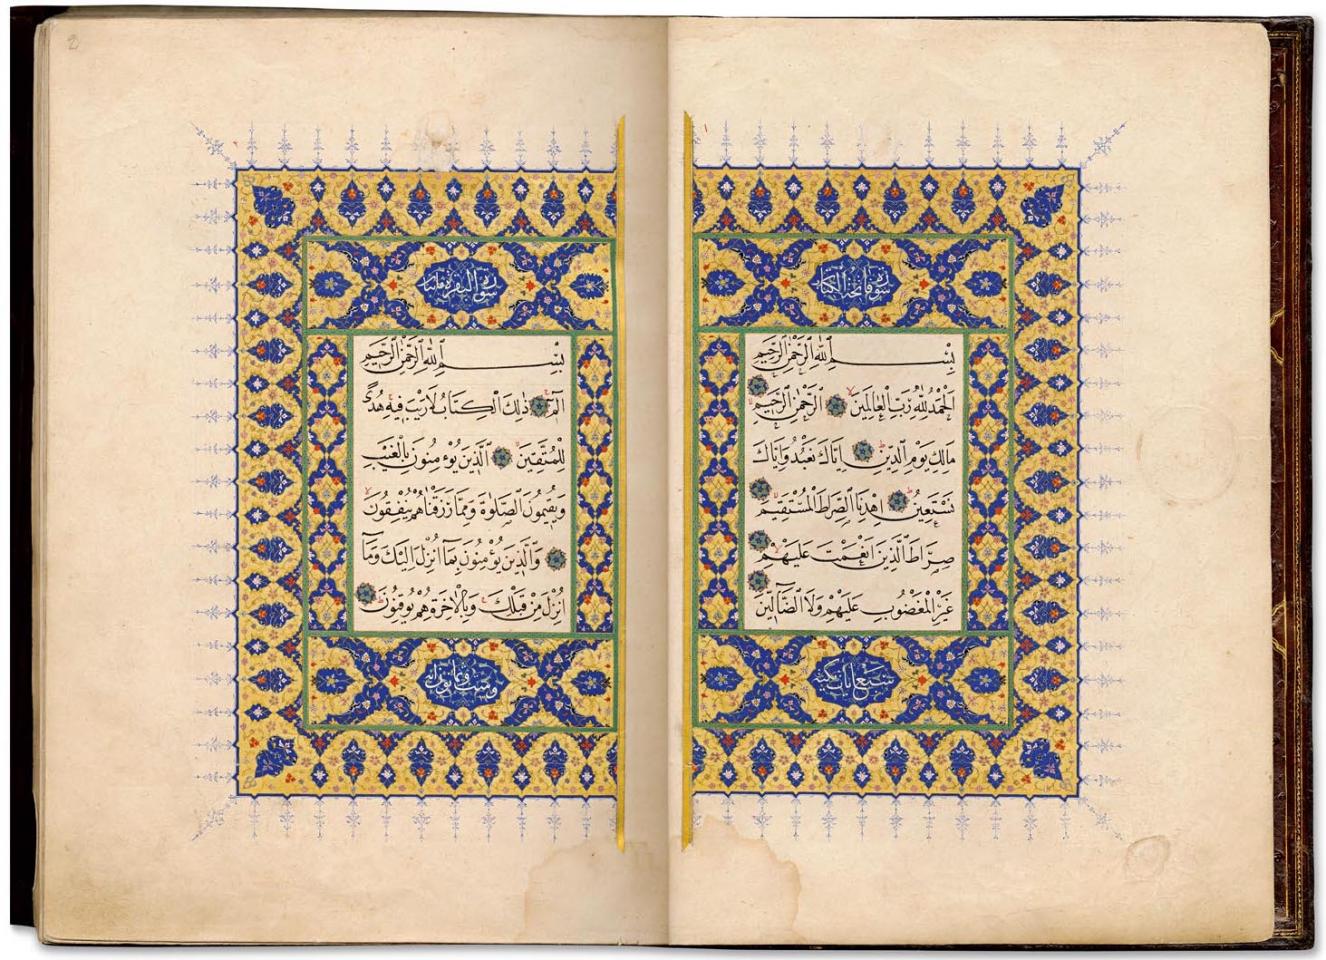 سورة فاتحة الكتاب
بِسْمِ اللَّهِ الرَّحْمَٰنِ الرَّحِيمِ
اَلْحَمْدُ لِلَّهِ رَبِّ الْعَالَمِينَ الرَّحْمٰنِ الرَّحِيمِ
مَالِكِ يَوْمِ الدِّينِ اِيَّاكَ نَعْبُدُ وَاِيَّاكَ
نَسْتَعِينُ اِهْدِنَا الصِّرَاطَ الْمُسْتَقِيمَ
صِرَاطَ الَّذِينَ اَنْعَمْتَ عَلَيْهِمْ
غَيْرِ الْمَغْضُوبِ عَلَيْهِمْ وَلَا الضَّالِّينَ
سبع ايات مكية
سورة البقرة مائتان
بِسْمِ اللَّهِ الرَّحْمٰنِ الرَّحِيمِ
الٓمٓ ذٰلِكَ الْكِتَابُ لَا رَيْبَ فِيهِ هُدًى
لِلْمُتَّقِينَ اَلَّذِينَ يُؤْمِنُونَ بِالْغَيْبِ
وَيُقِيمُونَ الصَّلٰوةَ وَمِمَّا رَزَقْنَاهُمْ يُنْفِقُونَ
وَالَّذِينَ يُؤْمِنُونَ بِمَا اُنْزِلَ اِلَيْكَ وَمَا
اُنْزِلَ مِنْ قَبْلِكَ وَبِالْاٰخِرَةِ هُمْ يُوقِنُونَ
وست وثمانون اية
2